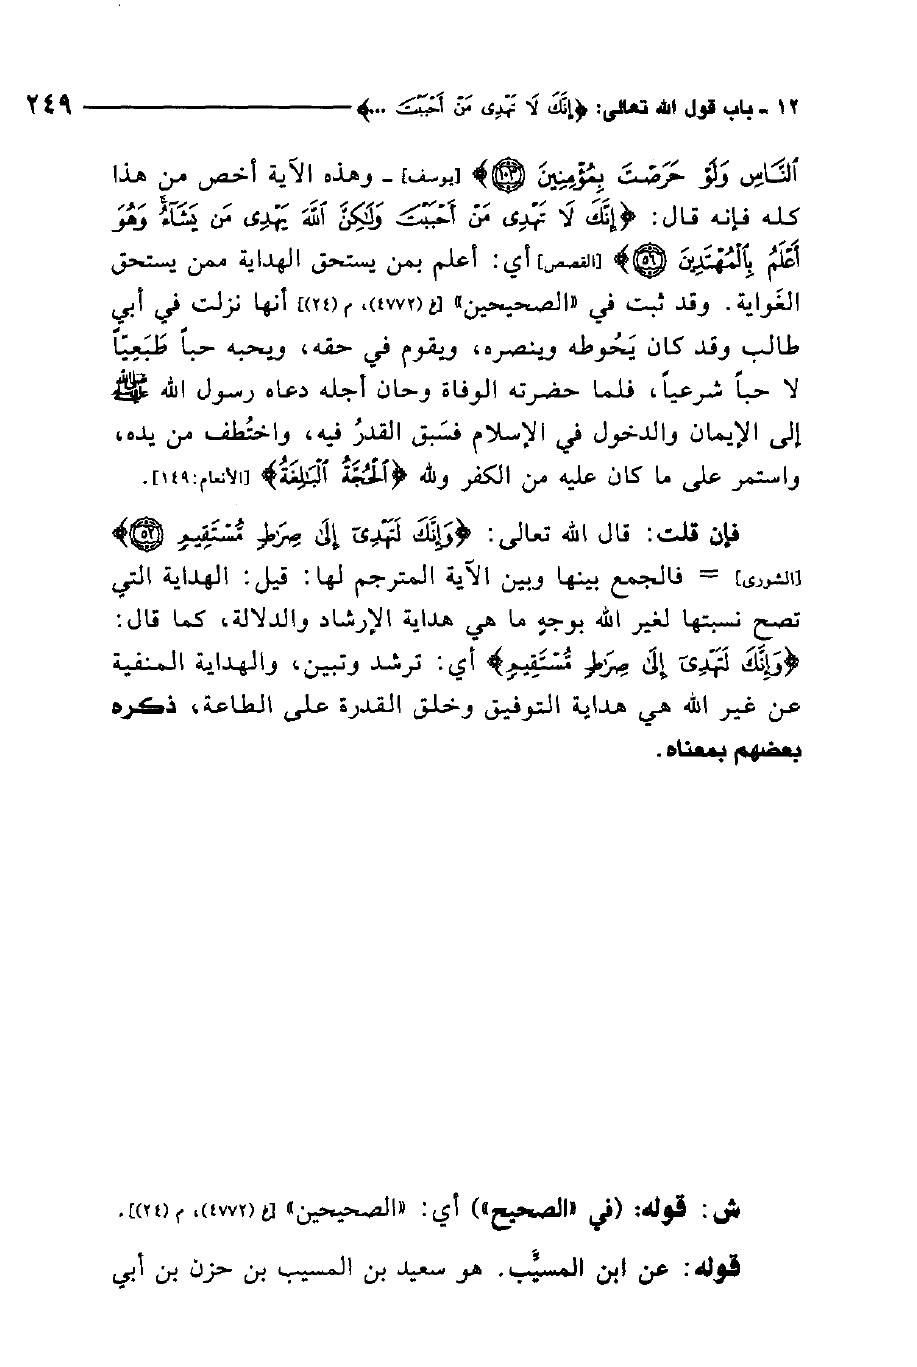 ١٢ - باب قول الله تعالى: ﴿إِنَّكَ لَا تَهْدِى مَنْ أَحْبَبْتَ ...﴾ ٢٤٩
ٱلنَّاسِ وَلَوْ حَرَصْتَ بِمُؤْمِنِينَ ﴿١٠٣﴾﴾ [يوسف] ـ وهذه الآية أخص من هذا
كله فإنه قال: ﴿إِنَّكَ لَا تَهْدِى مَنْ أَحْبَبْتَ وَلَٰكِنَّ ٱللَّهَ يَهْدِى مَن يَشَآءُ وَهُوَ
أَعْلَمُ بِٱلْمُهْتَدِينَ ﴿٥٦﴾﴾ [القصص] أي: أعلم بمن يستحق الهداية ممن يستحق
الغَواية. وقد ثبت في «الصحيحين» [خ (٤٧٧٢)، م (٢٤)] أنها نزلت في أبي
طالب وقد كان يَحُوطه وينصره، ويقوم في حقه، ويحبه حباً طَبَعِيّاً
لا حباً شرعياً، فلما حضرته الوفاة وحان أجله دعاه رسول الله ﷺ
إلى الإيمان والدخول في الإسلام فسَبق القدرُ فيه، واختُطف من يده،
واستمر على ما كان عليه من الكفر ولله ﴿ٱلْحُجَّةُ ٱلْبَٰلِغَةُ﴾ [الأنعام: ١٤٩].
فإن قلت: قال الله تعالى: ﴿وَإِنَّكَ لَتَهْدِىٓ إِلَىٰ صِرَٰطٍ مُّسْتَقِيمٍ ﴿٥٢﴾﴾
[الشورى] = فالجمع بينها وبين الآية المترجم لها: قيل: الهداية التي
تصح نسبتها لغير الله بوجهٍ ما هي هداية الإرشاد والدلالة، كما قال:
﴿وَإِنَّكَ لَتَهْدِىٓ إِلَىٰ صِرَٰطٍ مُّسْتَقِيمٍ﴾ أي: ترشد وتبين، والهداية المنفية
عن غير الله هي هداية التوفيق وخلق القدرة على الطاعة، ذكره
بعضهم بمعناه.
ش: قوله: (في «الصحيح») أي: «الصحيحين» [خ (٤٧٧٢)، م (٢٤)].
قوله: عن ابن المسيَّب. هو سعيد بن المسيب بن حزن بن أبي